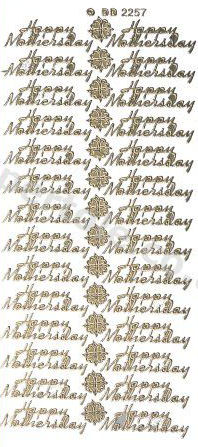 © DD 2257
Happy
Mothersday
Happy
Mothersday
Happy
Mothersday
Happy
Mothersday
Happy
Mothersday
Happy
Mothersday
Happy
Mothersday
Happy
Mothersday
Happy
Mothersday
Happy
Mothersday
Happy
Mothersday
Happy
Mothersday
Happy
Mothersday
Happy
Mothersday
Happy
Mothersday
Happy
Mothersday
Happy
Mothersday
Happy
Mothersday
Happy
Mothersday
Happy
Mothersday
Happy
Mothersday
Happy
Mothersday
Happy
Mothersday
Happy
Mothersday
Happy
Mothersday
Happy
Mothersday
Happy
Mothersday
Happy
Mothersday